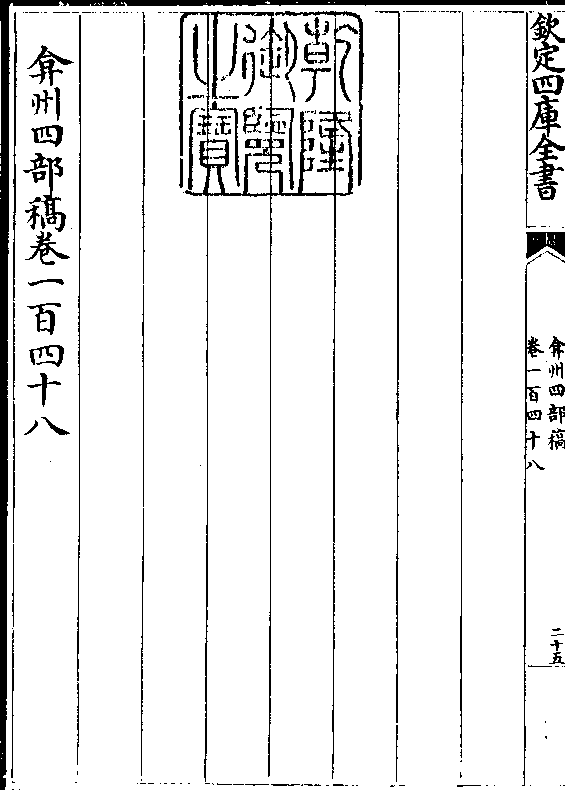 欽定四庫全書
弇州四部稿
卷一百四十八
二十五
乾隆
御覽
之寶
弇州四部稿卷一百四十八